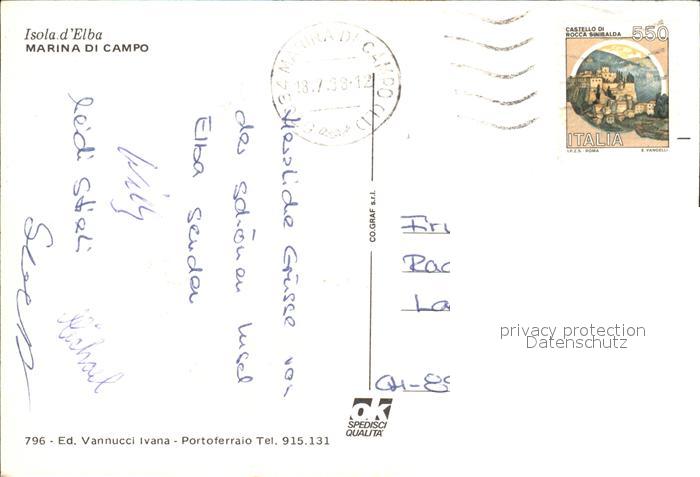 Isola d'Elba
MARINA DI CAMPO
MARINA DI CAMPO (LI)
18.7.88-12
CASTELLO DI
ROCCA SINIBALDA
550
ITALIA
I.P.Z.S. - ROMA E. VANGELLI
Herzliche Grüsse von
der schönen Insel
Elba senden
Willy
Heidi
Michael
CO.GRAF s.r.l.
Fir
Rac
La
CH-8
privacy protection
Datenschutz
ok
SPEDISCI
QUALITA'
796 - Ed. Vannucci Ivana - Portoferraio Tel. 915.131